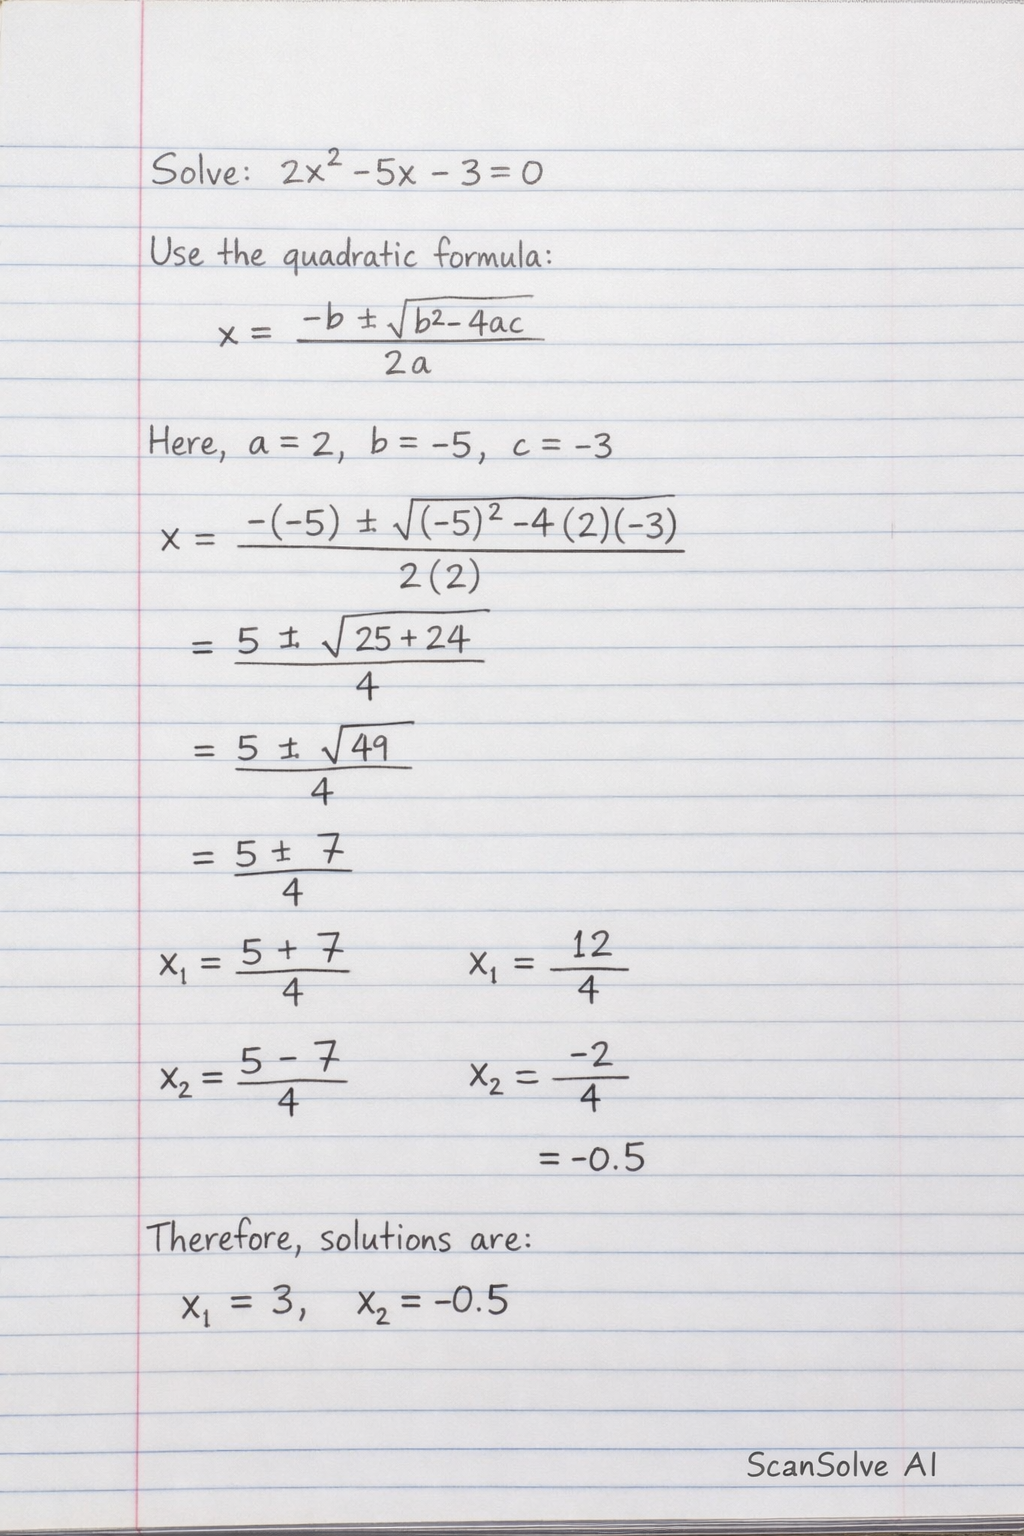 Solve: 2x² - 5x - 3 = 0
Use the quadratic formula:
x = (-b ± √(b² - 4ac)) / (2a)
Here, a = 2, b = -5, c = -3
x = (-(-5) ± √((-5)² - 4(2)(-3))) / (2(2))
= (5 ± √(25 + 24)) / 4
= (5 ± √49) / 4
= (5 ± 7) / 4
x₁ = (5 + 7) / 4    x₁ = 12 / 4
x₂ = (5 - 7) / 4    x₂ = -2 / 4
= -0.5
Therefore, solutions are:
x₁ = 3, x₂ = -0.5
ScanSolve AI